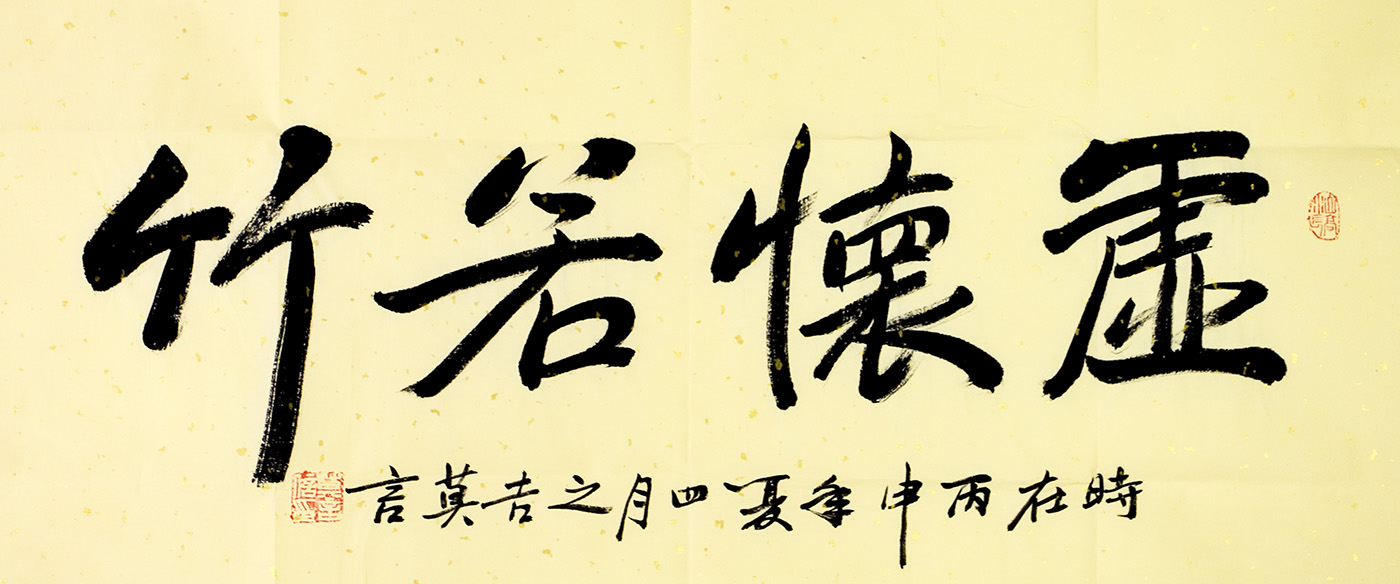 虛懷若竹
時在丙申年夏四月之吉莫言